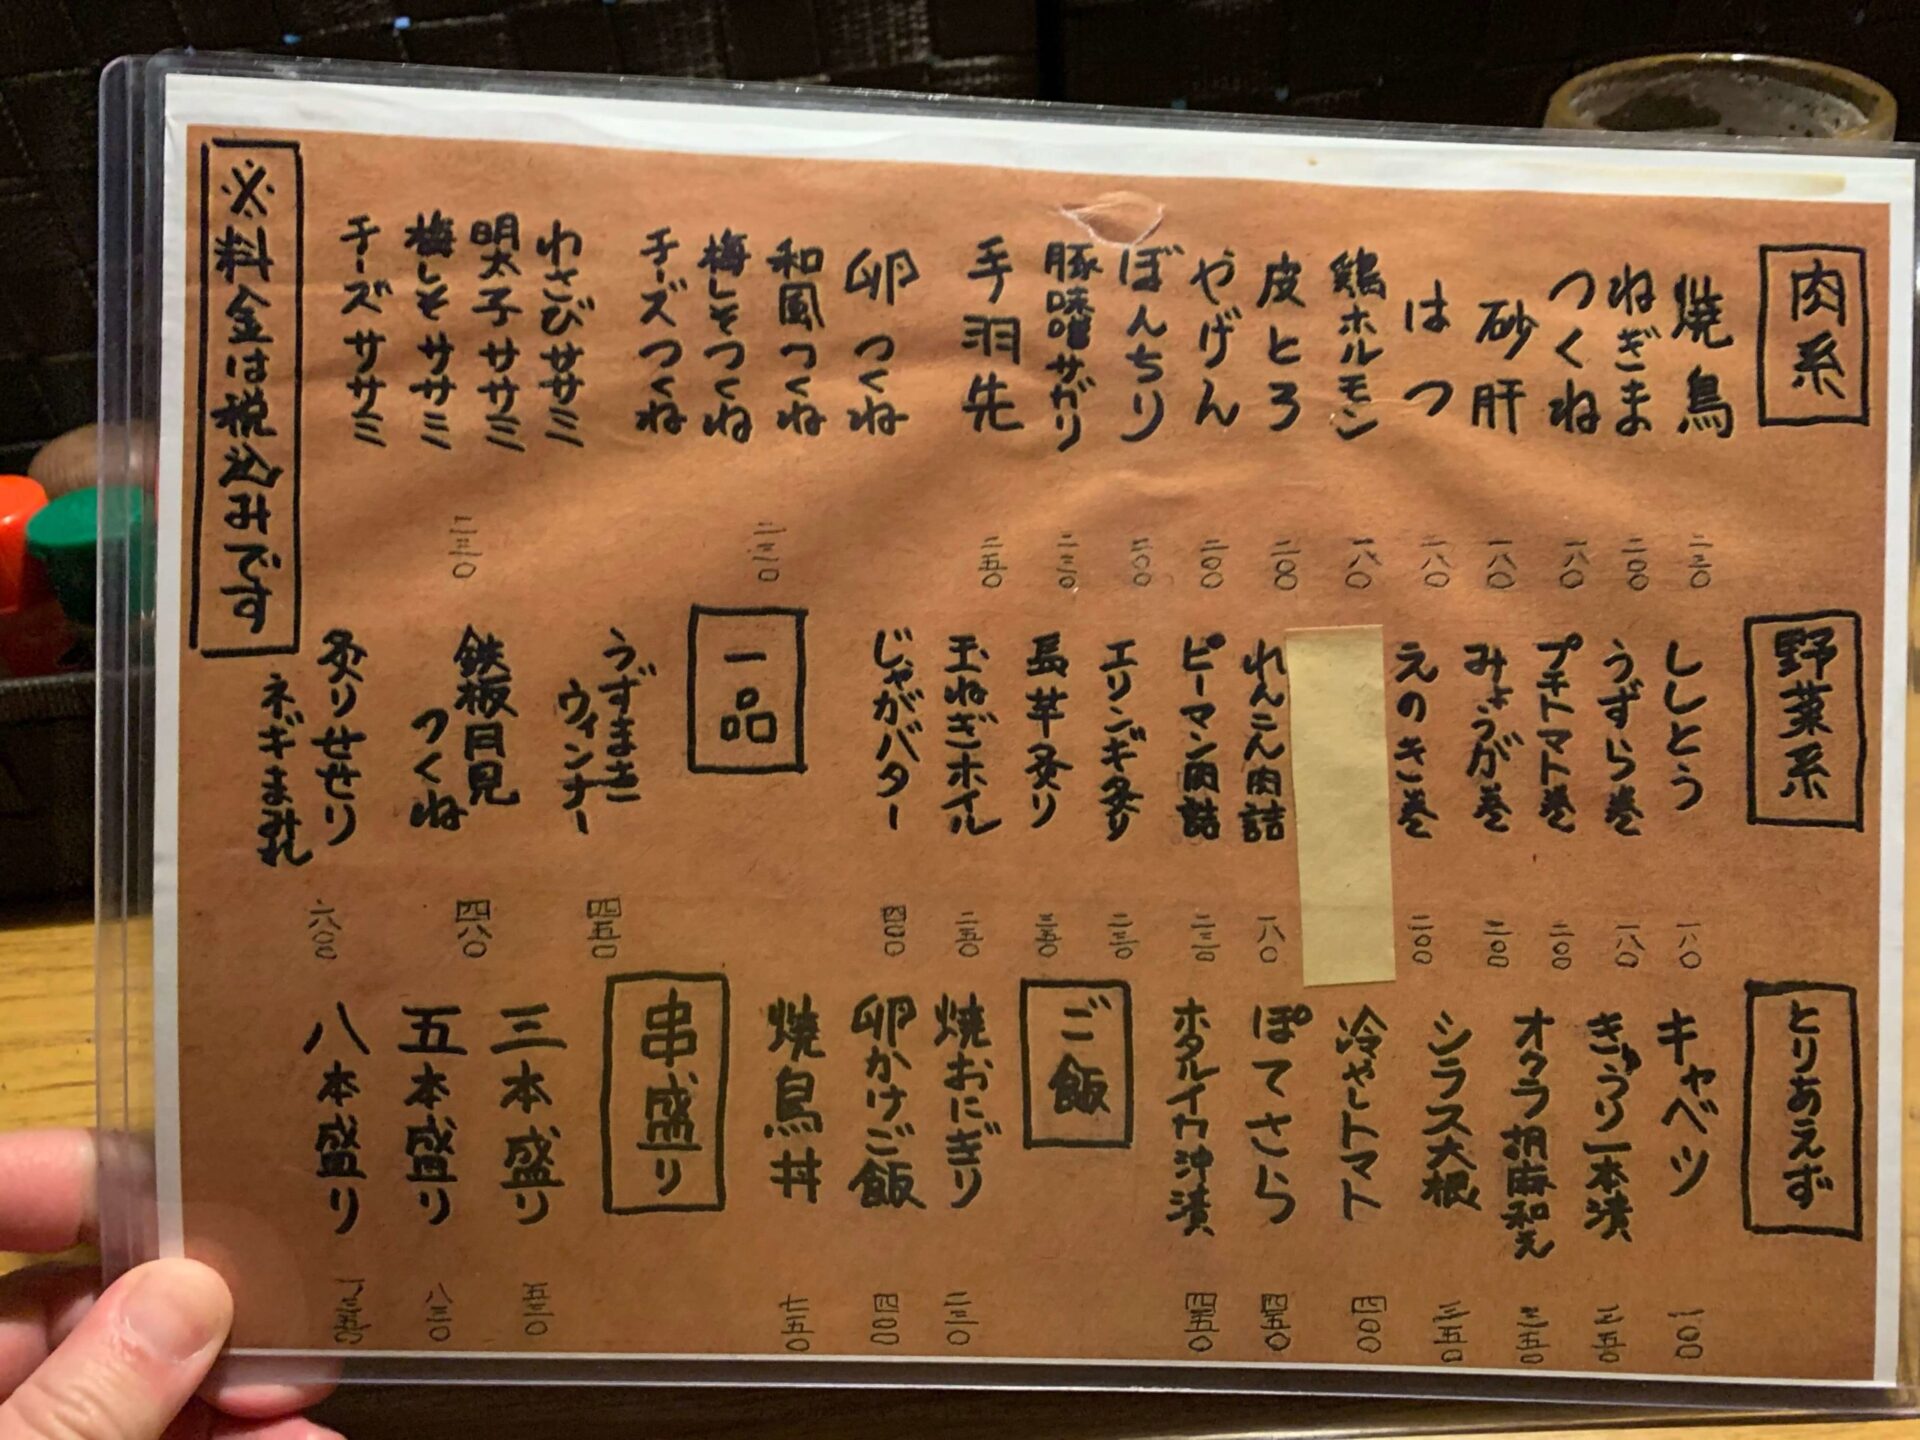 肉系
焼鳥 二三〇
ねぎま 二〇〇
つくね 一八〇
砂肝 一八〇
はつ 一八〇
鶏ホルモン 一八〇
皮とろ 二〇〇
やげん 二〇〇
ぼんちり 二〇〇
豚味噌サガリ 二三〇
手羽先 二五〇
卵つくね
和風つくね
梅しそつくね
チーズつくね
二三〇
わさびササミ
明太子ササミ
梅しそササミ
チーズササミ
二三〇
※料金は税込みです
野菜系
ししとう 一八〇
うずら巻 一八〇
プチトマト巻 二〇〇
みょうが巻 二〇〇
えのき巻 二〇〇
れんこん肉詰 一八〇
ピーマン肉詰 二三〇
エリンギ炙り 二三〇
長芋炙り 三五〇
玉ねぎホイル 二五〇
じゃがバター 四〇〇
一品
うずまき
ウィンナー 四五〇
鉄板月見
つくね 四八〇
炙りせせり
ネギまみれ 六八〇
とりあえず
キャベツ 一〇〇
きゅうり一本漬 三五〇
オクラ胡麻和え 三五〇
シラス大根 三五〇
冷やしトマト 四〇〇
ぽてさら 四五〇
ホタルイカ沖漬 四五〇
ご飯
焼おにぎり 二三〇
卵かけご飯 四〇〇
焼鳥丼 七五〇
串盛り
三本盛り 五三〇
五本盛り 八三〇
八本盛り